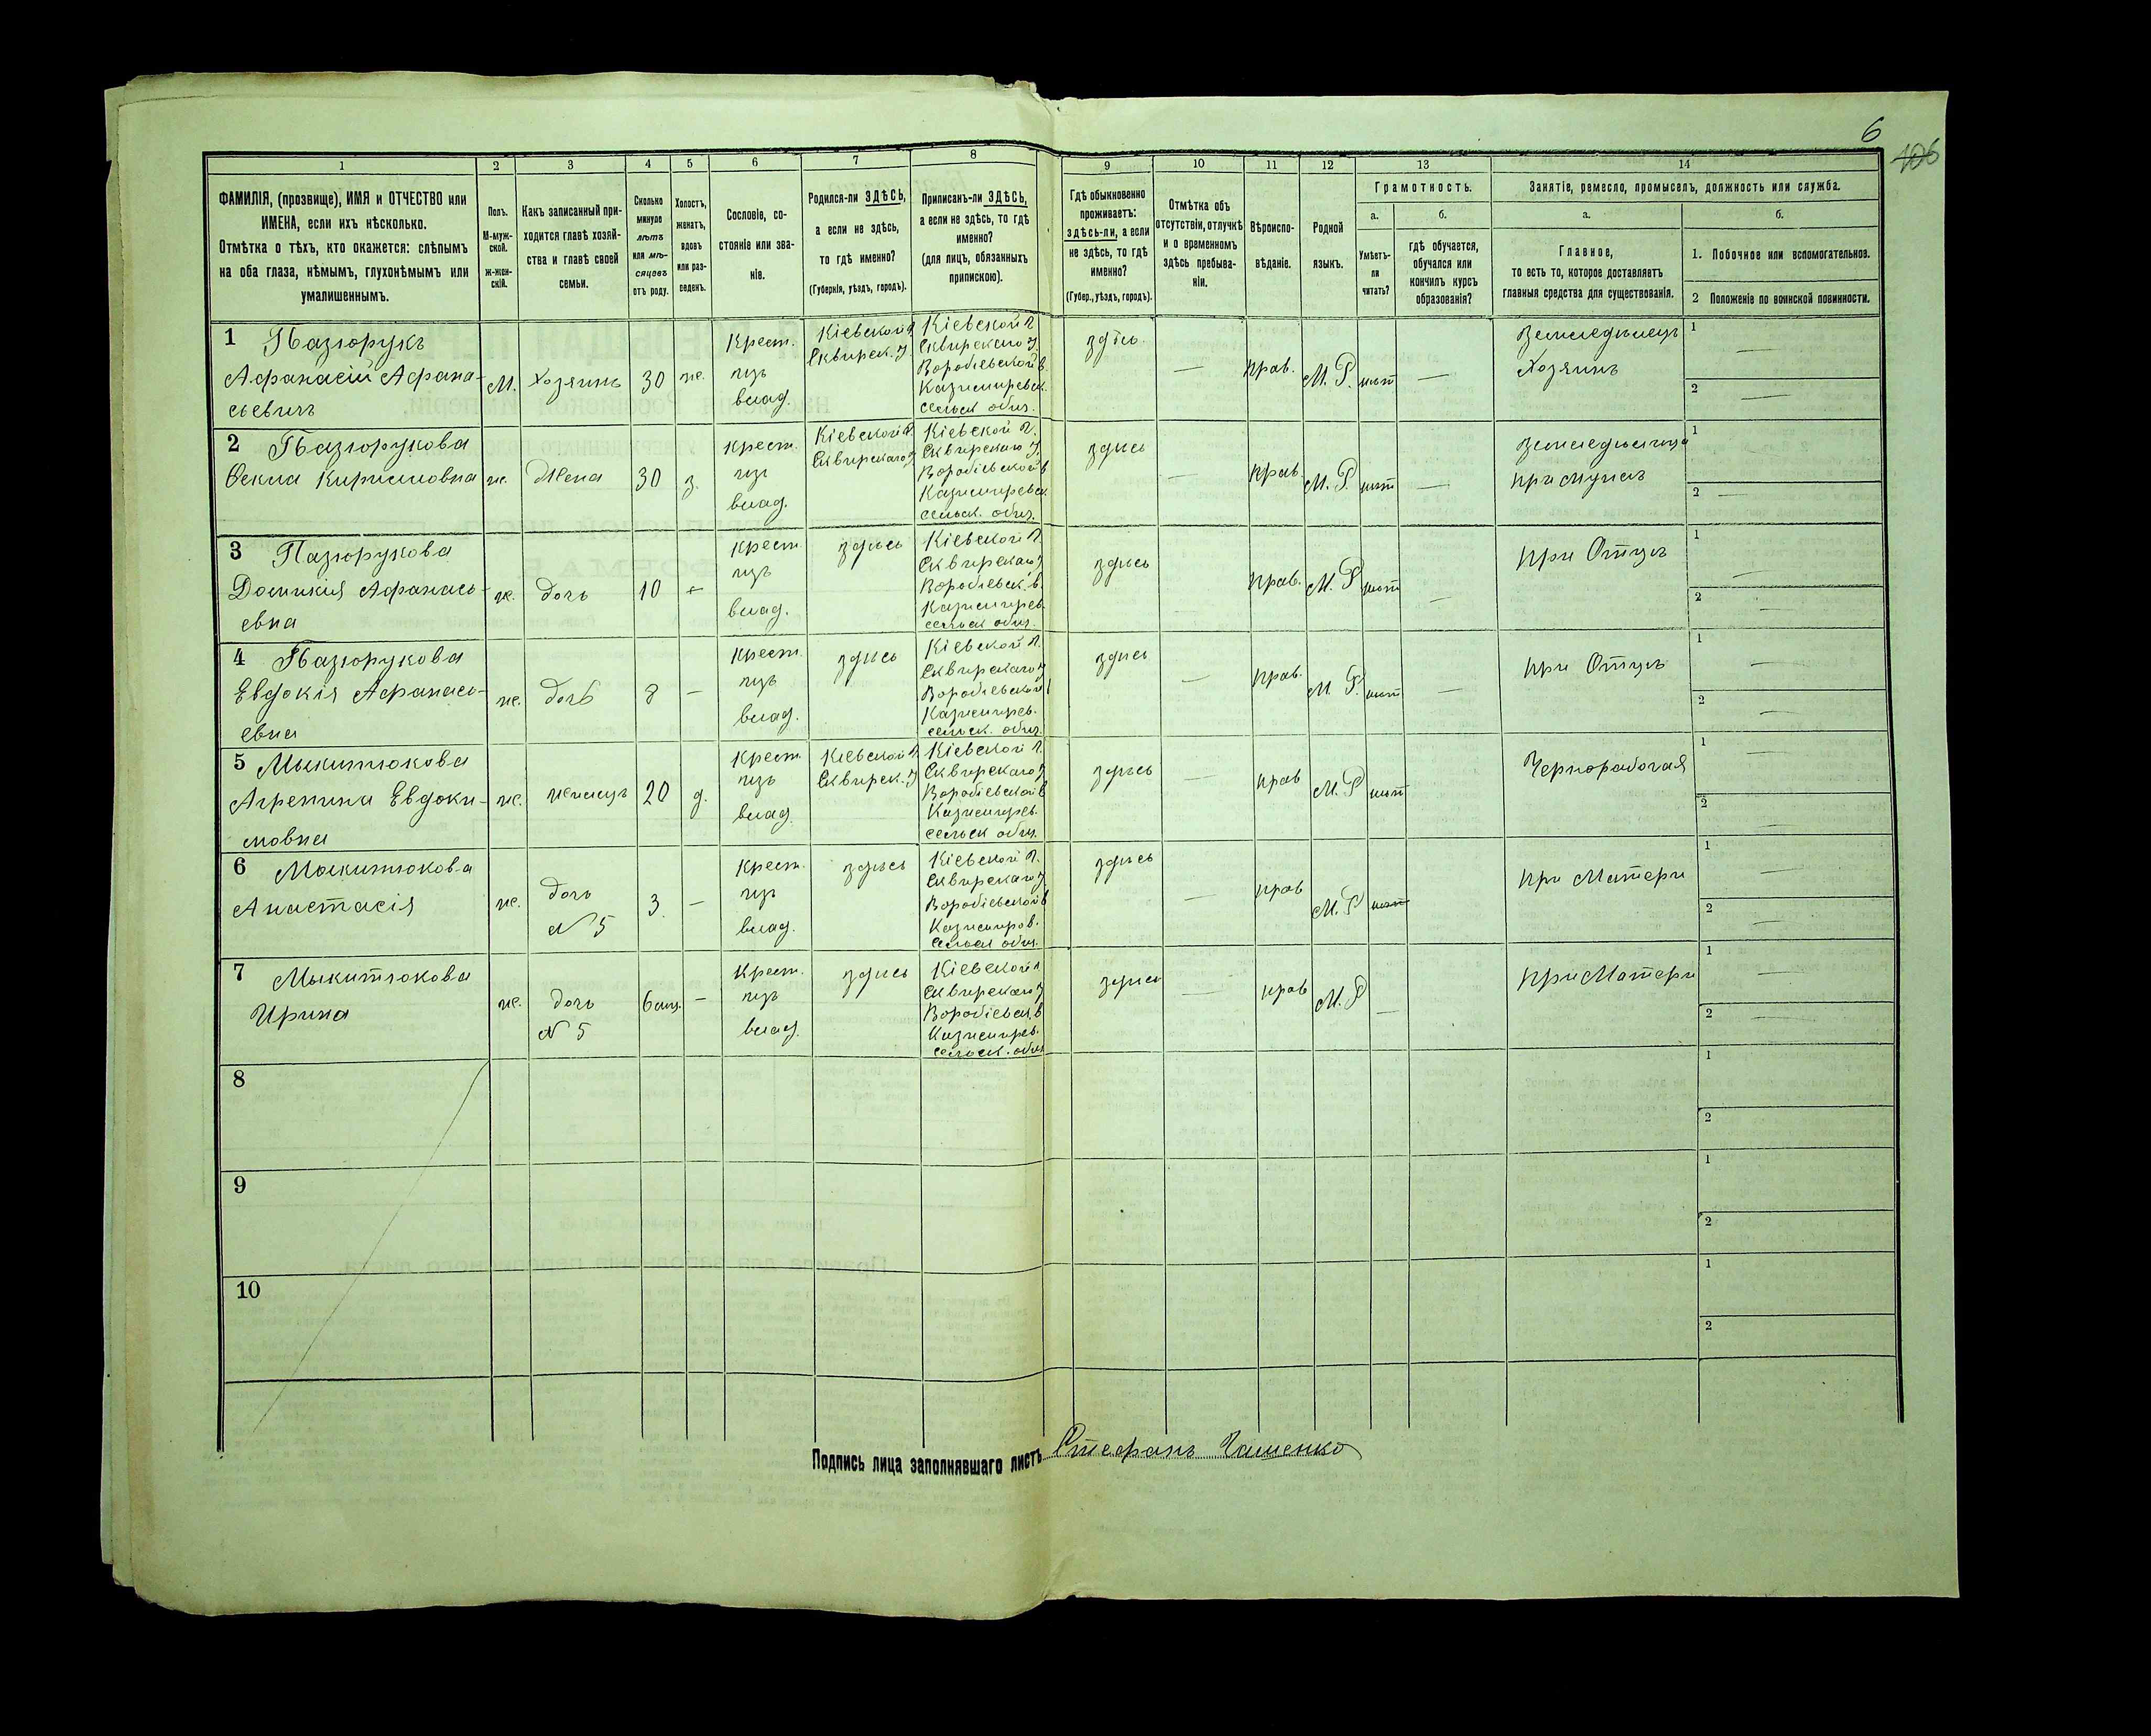 6
106
1 2 3 4 5 6 7 8 9 10 11 12 13 14
ФАМИЛІЯ, (прозвище), ИМЯ и ОТЧЕСТВО или
ИМЕНА, если ихъ нѣсколько.
Отмѣтка о тѣхъ, кто окажется: слѣпымъ
на оба глаза, нѣмымъ, глухонѣмымъ или
умалишеннымъ.
Полъ.
М-муж-
ской.
ж-жен-
скій.
Какъ записанный при-
ходится главѣ хозяй-
ства и главѣ своей
семьи.
Сколько
минуло
лѣтъ
или мѣ-
сяцевъ
отъ роду.
Холостъ,
женатъ,
вдовъ
или раз-
веденъ.
Сословіе, со-
стояніе или зва-
ніе.
Родился-ли ЗДѢСЬ,
а если не здѣсь,
то гдѣ именно?
(Губернія, уѣздъ, городъ).
Приписанъ-ли ЗДѢСЬ,
а если не здѣсь, то гдѣ
именно?
(для лицъ, обязанныхъ
припискою).
Гдѣ обыкновенно
проживаетъ:
здѣсь-ли, а если
не здѣсь, то гдѣ
именно?
(Губер., уѣздъ, городъ).
Отмѣтка объ
отсутствіи, отлучкѣ
и о временномъ
здѣсь пребыва-
ніи.
Вѣроиспо-
вѣданіе.
Родной
языкъ.
Грамотность.
а.
Умѣетъ-
ли
читать?
б.
гдѣ обучается,
обучался или
кончилъ курсъ
образованія?
Занятіе, ремесло, промыселъ, должность или служба.
а.
Главное,
то есть то, которое доставляетъ
главныя средства для существованія.
б.
1. Побочное или вспомогательное.
2 Положеніе по воинской повинности.
1 Пазюрукъ
Афанасій Афана-
сьевичъ
М.
Хозяинъ
30
ж.
Крест.
изъ
влад.
Кіевской г.
Сквирск. у.
Кіевской г.
Сквирскаго у.
Воробіевской в.
Казимиревск.
сельск общ.
здѣсь
—
прав.
М. Р.
нѣт
—
Земледѣлецъ
Хозяинъ
1 —
2 —
2 Пазюрукова
Фекла Кириловна
ж.
Жена
30
з.
Крест.
изъ
влад.
Кіевской г.
Сквирскаго у
Кіевской г.
Сквирскаго у.
Воробіевской в
Казимиревск.
сельск. общ.
здѣсь
—
прав.
М. Р.
нѣт
—
Земледѣлица
при мужѣ
1
2 —
3 Пазюрукова
Доминикія Афанась-
евна
ж.
дочь
10
-
Крест.
изъ
влад.
здѣсь
Кіевской г.
Сквирскаго у
Воробіевск. в.
Казимирев.
сельск общ.
здѣсь
прав.
М. Р
нѣт
—
при Отцѣ
1 —
2 —
4 Пазюрукова
Евдокія Афанась-
евна
ж.
дочь
8
—
Крест.
изъ
влад.
здѣсь
Кіевской г.
Сквирскаго у
Воробіевской
Казимирев.
сельск. общ.
здѣсь
—
прав.
М. Р.
нѣт
—
при Отцѣ
1 —
2 —
5 Мыкитюкова
Агрепина Евдоки-
мовна
ж.
жилецъ
20
д.
Крест.
изъ
влад.
Кіевской г.
Сквирск. у
Кіевской г.
Сквирскаго у
Воробіевской в
Казимирев.
сельск общ.
здѣсь
—
прав
М. Р
нѣт
Чернорабочая
1 —
2 —
6 Мыкитюкова
Анастасія
ж.
дочь
№ 5
3
—
Крест.
изъ
влад.
здѣсь
Кіевской г.
Сквирскаго у
Воробіевской в
Казимиров.
сельск общ.
здѣсь
—
прав
М. Р
нѣт
при Матери
1 —
2 —
7 Мыкитюкова
Ирина
ж.
дочь
№ 5
6 мц.
—
Крест.
изъ
влад.
здѣсь
Кіевской г
Сквирскаго у
Воробіевск. в
Казимирев.
сельск. общ
здѣсь
—
прав
М. Р
—
при Матери
1 —
2 —
8
1
2
9
1
2
10
1
2
Подпись лица заполнявшаго листъ Стефанъ